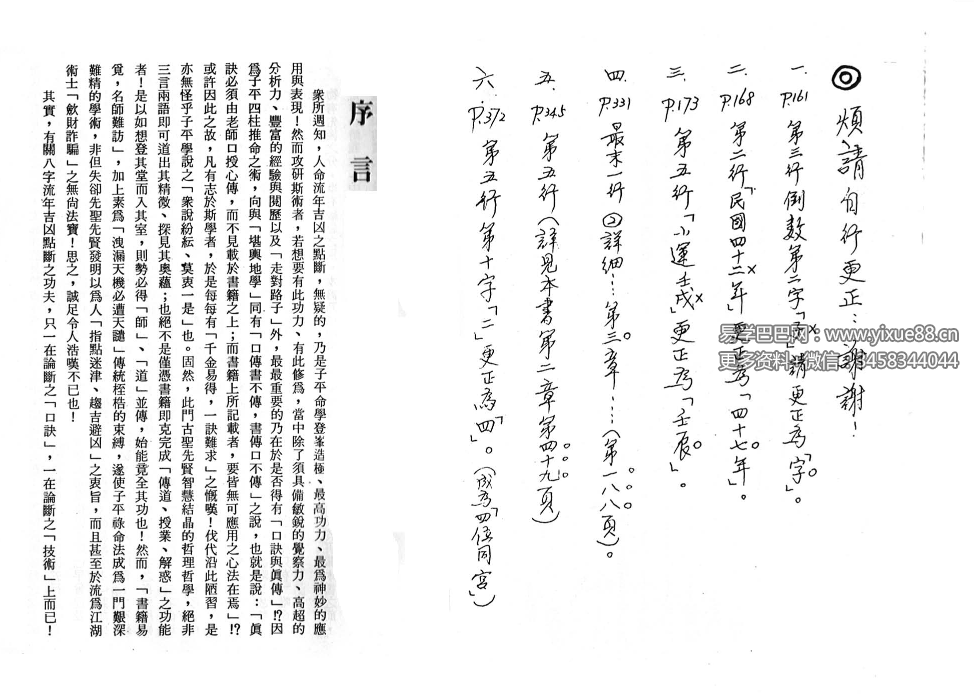 ◎煩請自行更正:謝謝!
一、P.161 第三行倒數第二字「子」請更正為「字」。
二、P.168 第二行「民國四十二年」更正為「四十七年」。
三、P.173 第五行「小運壬戌」更正為「壬辰」。
四、P.331 最末一行②詳細…第三章……(第一八八頁)。
五、P.345 第五行(詳見本書第二章第四十九頁)
六、P.372 第五行第十字「二」更正為「四」。(成為四伍同宮」)
易学巴巴网:www.yixue88.cn
更多资料+微信:3458344044
序言
衆所週知,人命流年吉凶之點斷,無疑的,乃是子平命學登峯造極、最高功力、最爲神妙的應
用與表現!然而攻研斯術者,若想要有此功力、有此修爲,當中除了須具備敏銳的覺察力、高超的
分析力、豐富的經驗與閱歷以及「走對路子」外,最最重要的乃在於是否得有「口訣與眞傳」!?因
爲子平四柱推命之術,向與「堪輿地學」同有「口傳書不傳,書傳口不傳」之說,也就是說:「眞
訣必須由老師口授心傳,而不見載於書籍之上;而書籍上所記載者,要皆無可應用之心法在焉」!?
或許因此之故,凡有志於斯學者,於是每每有「千金易得,一訣難求」之慨嘆!伐代沿此陋習,是
亦無怪乎子平學說之「衆說紛紜、莫衷一是」也。固然,此門古聖先賢智慧結晶的哲理哲學,絕非
三言兩語即可道出其精微、探見其奧蘊;也絕不是僅憑書籍即克完成「傳道、授業、解惑」之功能
者!是以如想登其堂而入其室,則勢必得「師」、「道」並傳,始能竟全其功也!然而,「書籍易
覓,名師難訪」,加上素爲「洩漏天機必遭天譴」傳統桎梏的束縛,遂使子平祿命法成爲一門艱深
難精的學術,非但失卻先聖先賢發明以爲人「指點迷津、趨吉避凶」之衷旨,而且甚至於流爲江湖
術士「斂財詐騙」之無尚法寶!思之,誠足令人浩嘆不已也!
其實,有關八字流年吉凶點斷之功夫,只一在論斷之「口訣」,一在論斷之「技術」上而已!